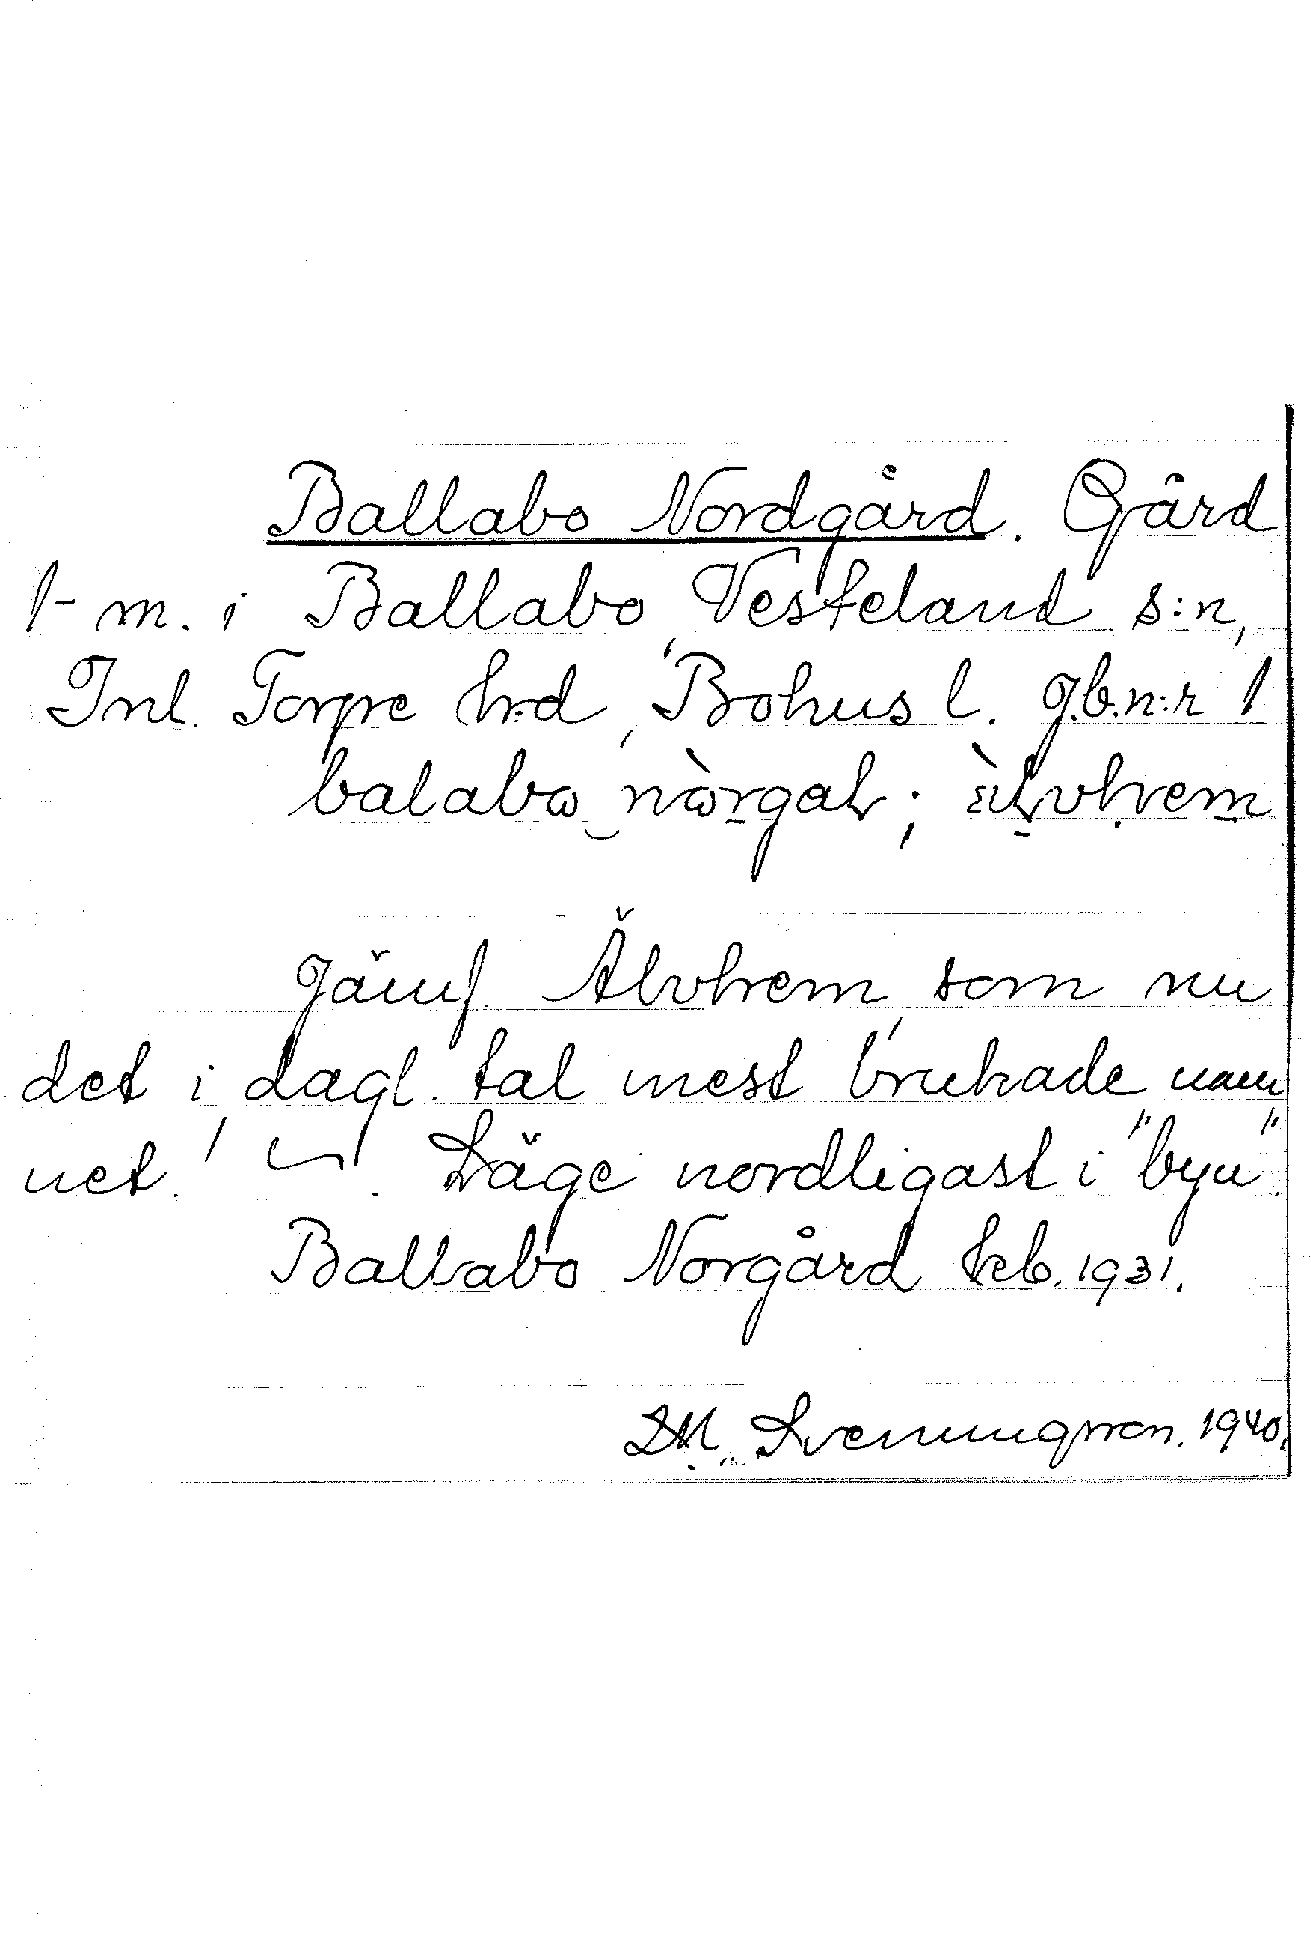 Ballabo Nordgård. Gård
1 m. i Ballabo, Vesteland s:n,
Inl. Torpe hrd, Bohus l. g.b.n:r 1
balabω nὼrgaḷ; æ̀ḷvhem
Jämf. Älvhem, som nu
det i dagl. tal mest brukade nam
net. Läge nordligast i "byn".
Ballabo Norgård kb. 1931.
DM Sveningsson. 1940.